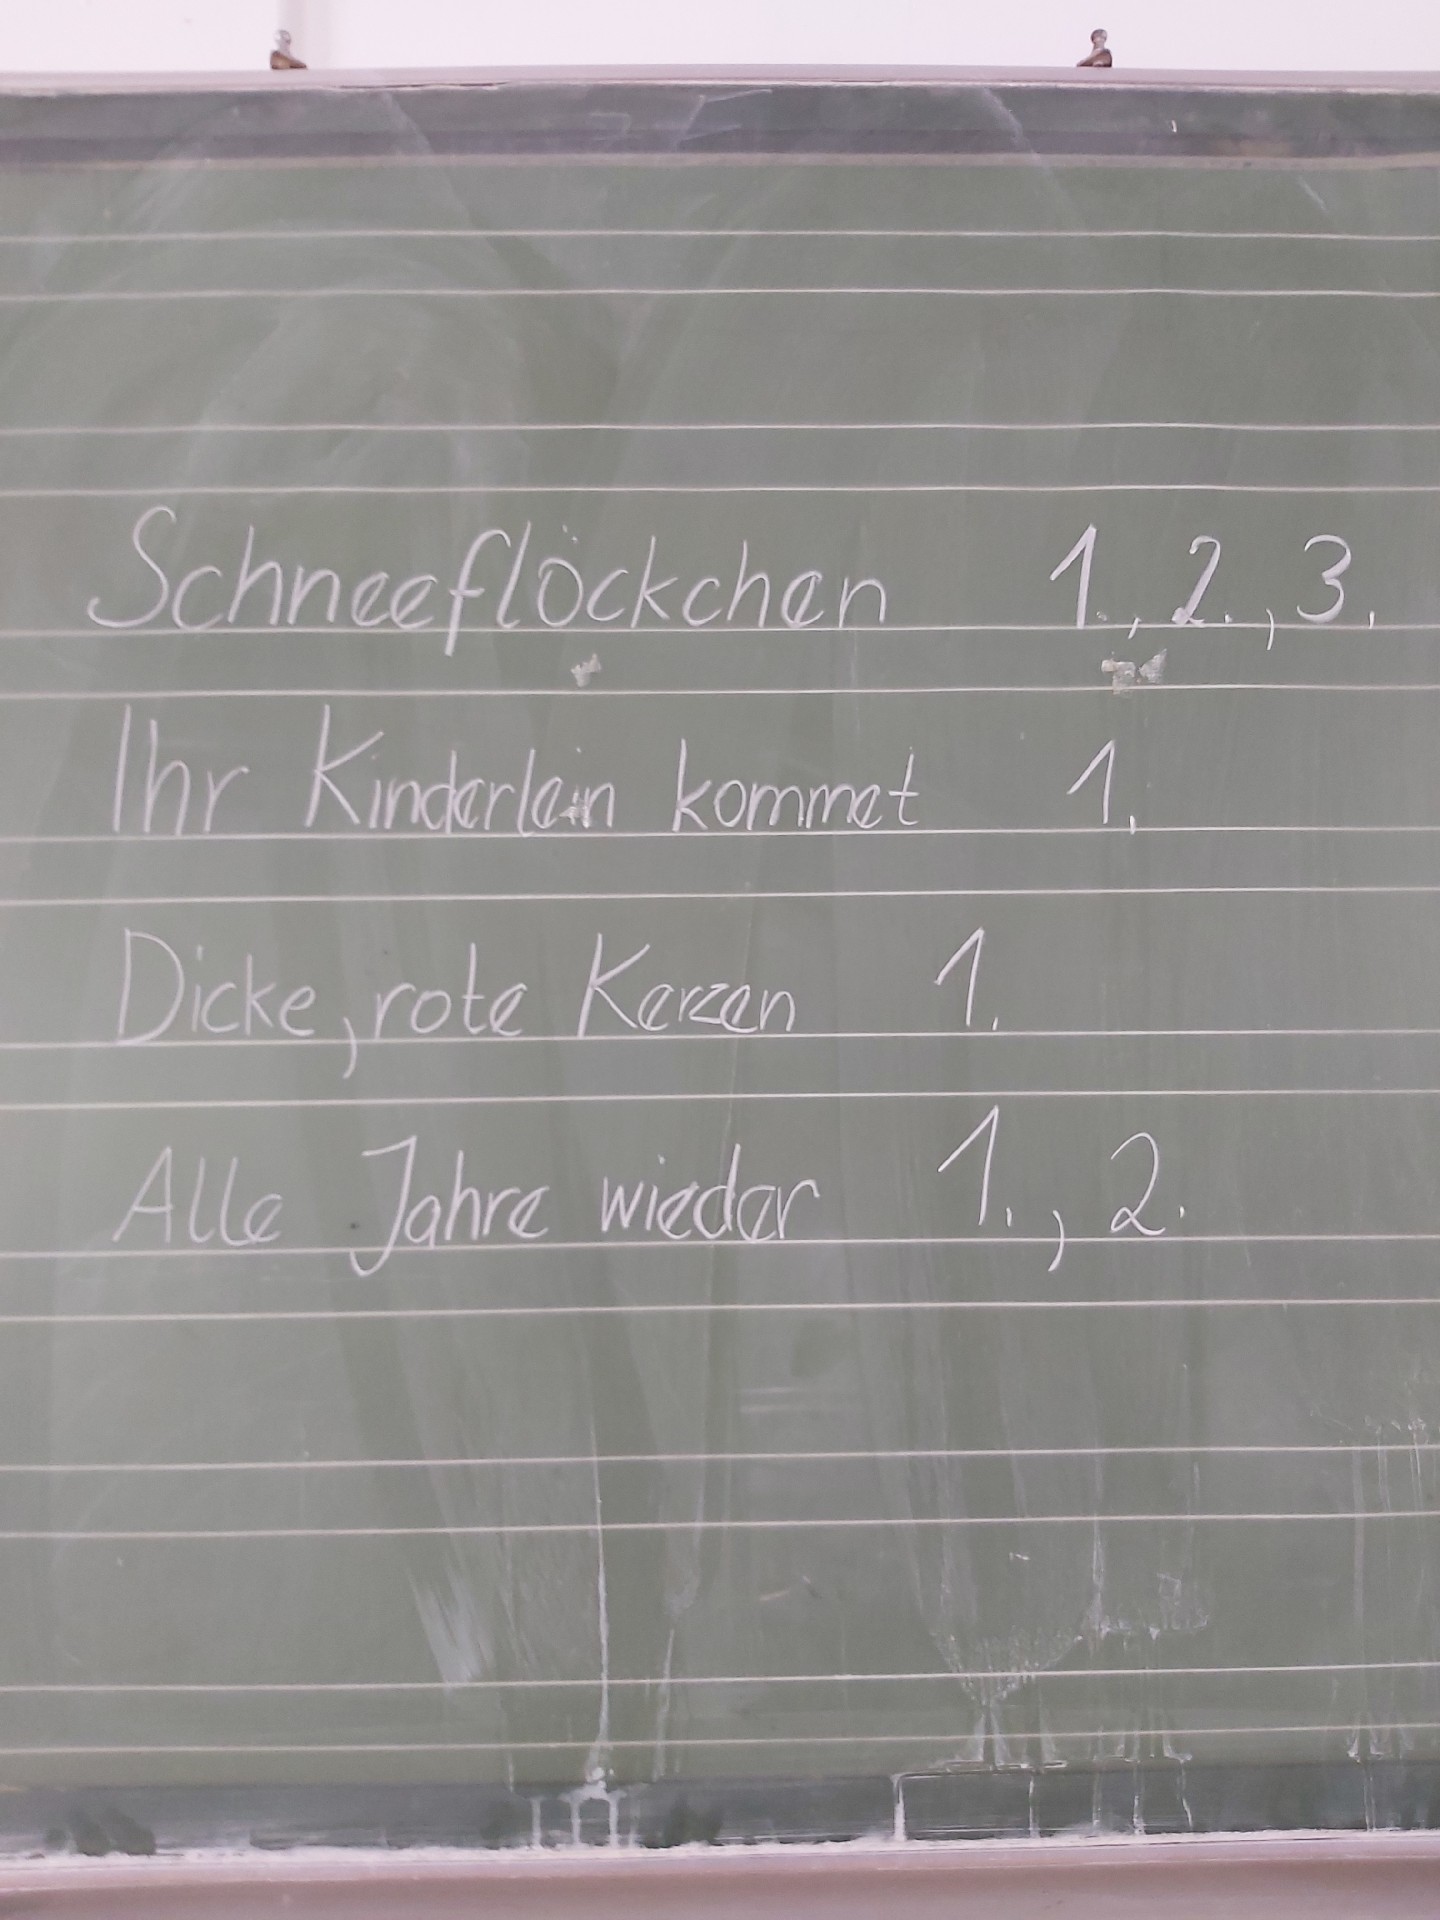 Schneeflöckchen 1., 2., 3.
Ihr Kinderlein kommet 1.
Dicke, rote Kerzen 1.
Alle Jahre wieder 1., 2.